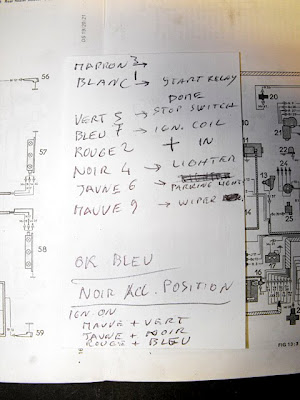 MARRON 3 →
BLANC 1 → START RELAY
DOME
VERT 5 → STOP SWITCH
BLEU 7 → IGN. COIL
ROUGE 2 + IN
NOIR 4 → LIGHTER
JAUNE 6 → PARKING LIGHT
MAUVE 9 → WIPER
OK BLEU
NOIR ACC. POSITION
IGN ON
MAUVE + VERT
JAUNE + NOIR
ROUGE + BLEU
56
57
58
59
20
21
22
23
24
13
25
16
26
FIG 13:3